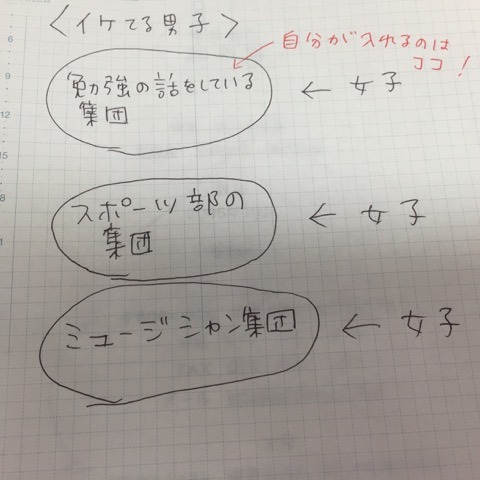 ＜イケてる男子＞
自分が入れるのは
ココ！
勉強の話をしている
集団
← 女子
スポーツ部の
集団
← 女子
ミュージシャン集団
← 女子